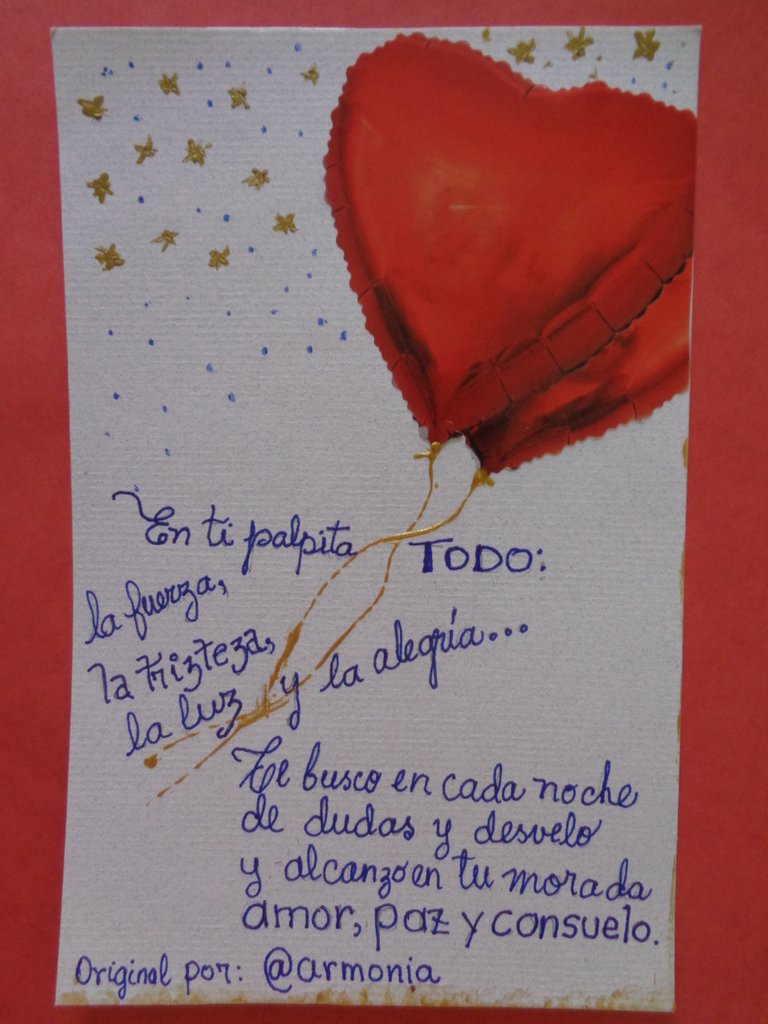 En ti palpita TODO:
la fuerza,
la trizteza,
la luz y la alegría...
Te busco en cada noche
de dudas y desvelo
y alcanzo en tu morada
amor, paz y consuelo.
Original por: @armonia